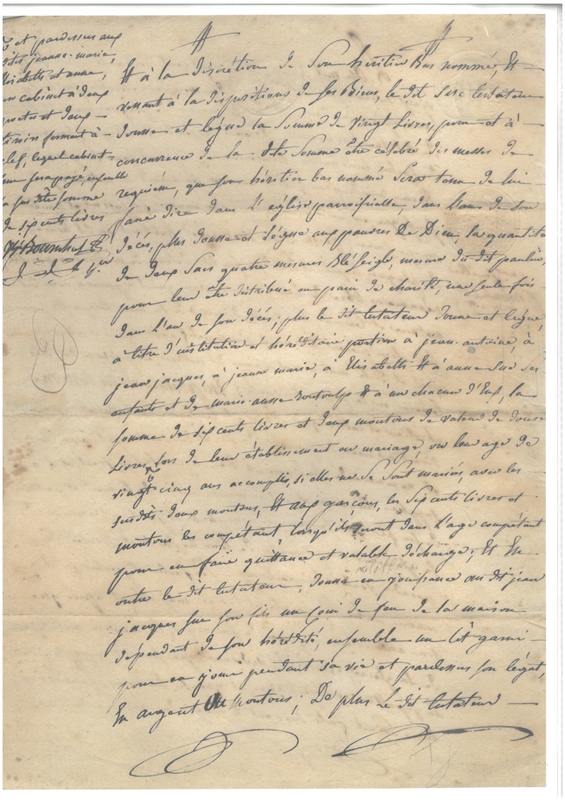 et pardessus aux
jeanne-marie,
et anne,
un cabinet à deux
et deux
ferment à
clef, lequel cabinet
sera payé,
la susdite somme
de six cents livres
& à la discrétion de son héritier bas nommé, &
venant à la disposition de ses biens, le dit testateur
donne et lègue la somme de vingt livres, pour et à
concurrence de la dite somme être célébré des messes de
requiem, que son héritier bas nommé sera tenu de lui
faire dire dans l'église parroissialle, dans l'an de son
décés, plus donne et lègue aux pauvres De Dieu, la quantité
de deux sacs quatre mesures Blé seigle, mesure du dit
pour leur être distribué en pain de charité, une seule fois
dans l'an de son décés; plus le dit testateur donne et lègue,
à titre d'institution et héréditaire portion à jean-antoine, à
jean jacques, à jeanne marie, à Elisabeth & à anne ses
enfants et de marie anne & à un chacun d'eux, la
somme de six cents livres et deux moutons de valeur de douse
Livres, lors de leur établissement ou mariage, ou leur age de
vingt cinq ans accomplis, si elles ne se sont mariées, avec les
susdits deux moutons, & aux garçons, les six cents livres et
moutons les compétant, lorsqu'ils seront dans l'age compétant
pour en faire quittance et valable décharge; Et En
outre le dit testateur, donne en jouissance au dit jean
jacques son fils un Coin de feu de la maison
dependant de son hérédité, ensemble un lit garni
pour en jouir pendant sa vie et pardessus son légat,
En argent ou moutons; De plus Le dit testateur